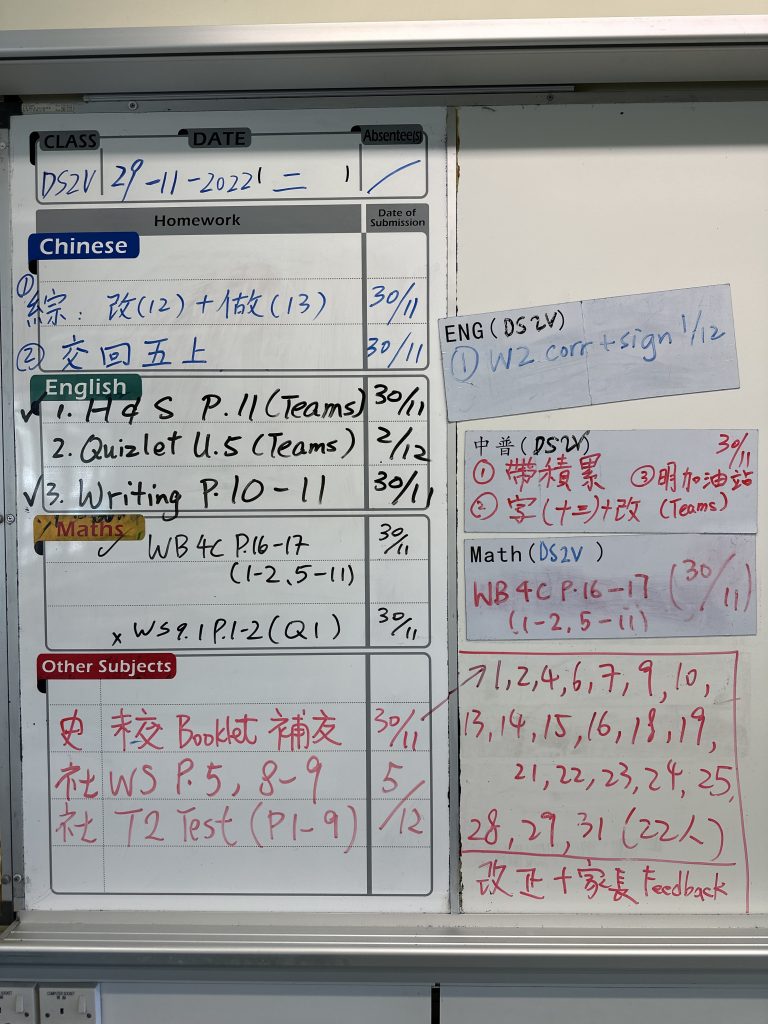 CLASS DATE Absentee(s)
DS2V 29-11-2022 二 /
Homework Date of Submission
Chinese
① 綜: 改(12)+做(13) 30/11
② 交回五上 30/11
English
✓ 1. H&S P.11 (Teams) 30/11
2. Quizlet U.5 (Teams) 2/12
✓ 3. Writing P.10-11 30/11
Maths
✓ WB 4C P.16-17 30/11
(1-2、5-11)
x WS 9.1 P.1-2 (Q1) 30/11
Other Subjects
史 未交 Booklet 補交 30/11
社 WS P.5, 8-9 5/12
社 T2 Test (P1-9)
ENG (DS2V)
① W2 corr + sign 1/12
中普 (DS2V) 30/11
① 帶積累 ③明加油站
② 字(十三)+改 (Teams)
Math (DS2V)
WB 4C P.16-17 (30/11)
(1-2, 5-11)
1, 2, 4, 6, 7, 9, 10,
13, 14, 15, 16, 18, 19,
21, 22, 23, 24, 25,
28, 29, 31 (22人)
改正+家長 Feedback